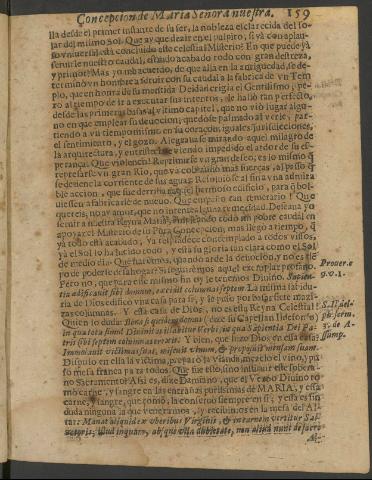 Concepcion de Maria Señora nuestra. 159
lla desde el primer instante de su ser, la nobleza esclarecida del so-
lar del mismo Sol. Que ay que dezir en el pulpito, si yà con aplau-
so vniuersal està concluido este celestial Misterio? En que puede yà
seruirle nuestro caudal, estando acabado todo con gran destreza,
y primor? Mas yo me acuerdo, de que allà en la antiguedad, se de-
terminò vn hombre à seruir con su caudal a la fabrica de vn Tem-
plo, que en honra de su mentida Deidad erigia el Gentilismo; pe-
ro al tiempo de ir a executar sus intentos, le hallò tan perfecto,
desde las primeras basas al vltimo capitel, que no viò lugar algu-
no en que emplear su deuocion; quedòse pasmado al verle, par-
tiendo à vn tiempo mismo en su coraçon iguales jurisdicciones,
el sentimiento, y el gozo. Alegraua se mirando aquel milagro de
la arquitectura, y entristecia se viendo impedido el ardor de su es-
perança. Que violencia! Reprimirse vn gran deseo; es lo mismo que
represarse vn gran Rio, que và cobrando mas fuerças, al passo que
se detiene la corriente de sus aguas.
ble accion, que fue derribar aquel hermoso edificio, para que bol-
uiessen a fabricarle de nuevo. Que empeño tan temerario! Que
quereis, no ay amor, que no intente alguna temeridad. Deseaua yo
seruir a nuestra Reyna Maria, empleando todo mi pobre caudal en
apoyar el Misterio de su Pura Concepcion, mas llego a tiempo, que
yà todo està acabado, yà resplandece contemplado a todos visos,
yà el Sol lo ha luzido todo, y està su gloria tan clara como el Sol
de medio dia. Que haremos, quando arde la deuocion, y no es tiem-
po de poderle desahogar? Si seguiremos aquel exemplar profano.
Pero no, que para esse mismo fin oy le tenemos Diuino. Sapien-
tia ædificauit sibi domum, excidit columnas septem. La misma sabidu-
ria de Dios edificò vna casa para si, y le puso por basas siete mari-
zas columnas. Y essa casa de Dios, no es essa Reyna Celestial?
Quien lo duda: Bona siquidem domus (dize su Capellan Ildefonso)
in qua tota fomes Diuinitus illabitur Verbi, in qua Sapientia Dei Pa-
tris sibi septem columnas erexit. Y bien, que hizo Dios en essa casa?
Immolauit victimas suas, miscuit vinum, & proposuit mensam suam.
Dispuso en ella la victima, preparò la vianda, mezclò el vino, y pu-
so mesa franca para todos. Que fue esso, sino instituir esse sobera-
no Sacramento? Assi es, dize Damiano, que el Verbo Diuino to-
mò carne, y sangre en las entrañas purissimas de MARIA; y essa
carne, y sangre, que tomò, la conseruò siempre en si; y essa es sin
duda ninguna la que veneramos, y recibimos en la mesa del Al-
tar: Manat aliquid ex vberibus Virginis, & in carnem vertitur Sal-
uatoris; illud inquam, absque vlla dubietate, non aliud nunc de sacro
Al-
Prouer. c
9. v. 1.
S. Ildel-
ph. serm.
3. de A-
ssump.